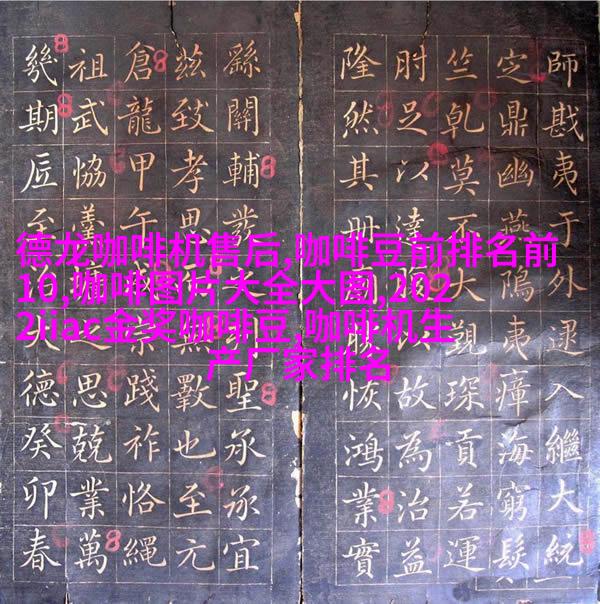 德龙咖啡机售后,咖啡豆前排名前
10,咖啡图片大全大图,202
2iiac金奖咖啡豆,咖啡机生
产厂家排名
師戡夷于外逮入繼大統
定鼎幽燕隝夷瘴海窮髮
竺乹莫不大覲琛貢若運
肘足以達故為治益
隆然其冊恢鴻業實
繇關輔發聖承承宜
茲致孝思無斁也至元
倉龍甲午宗踐祚恪繩
祖武恊羣思兢業萬
幾期匠至治德癸卯春